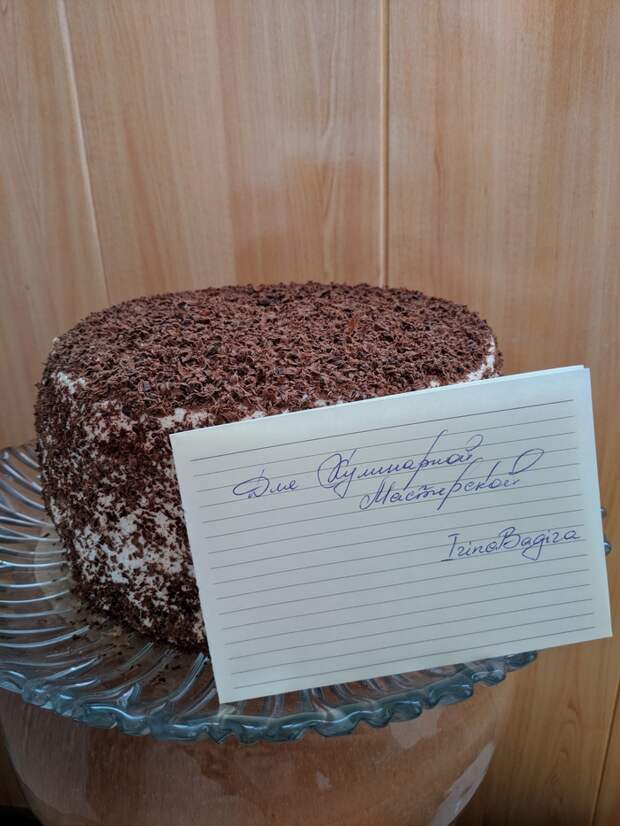 Для Кулинарной
Мастерской
IrinaBagira